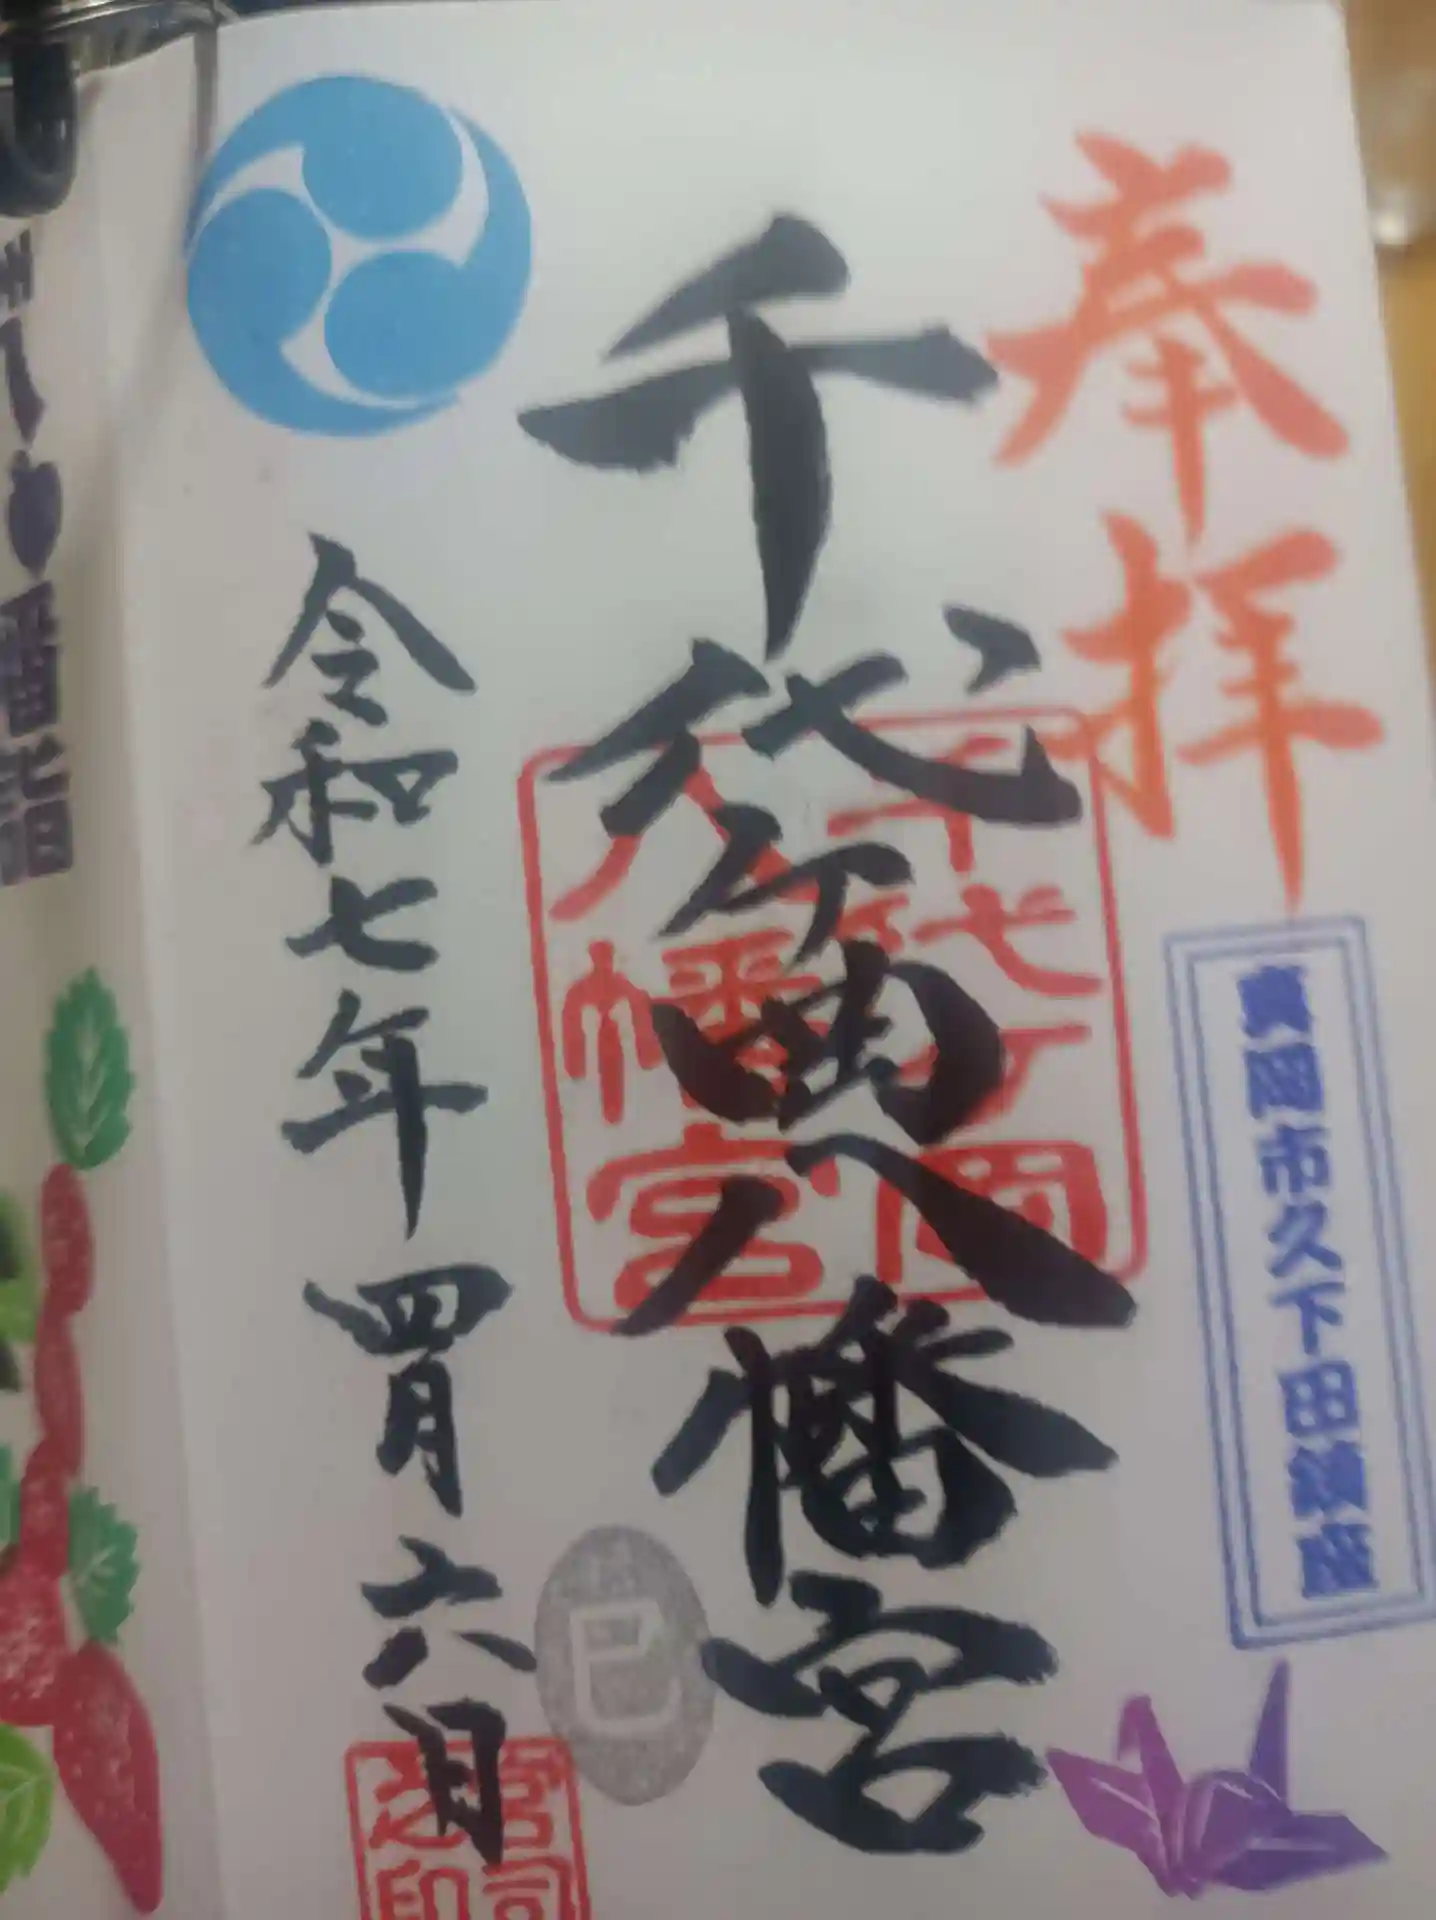 奉拝
真岡市久下田鎮座
千代ヶ岡八幡宮
千代ヶ岡
八幡宮
令和七年四月六日
巳
宮司
之印